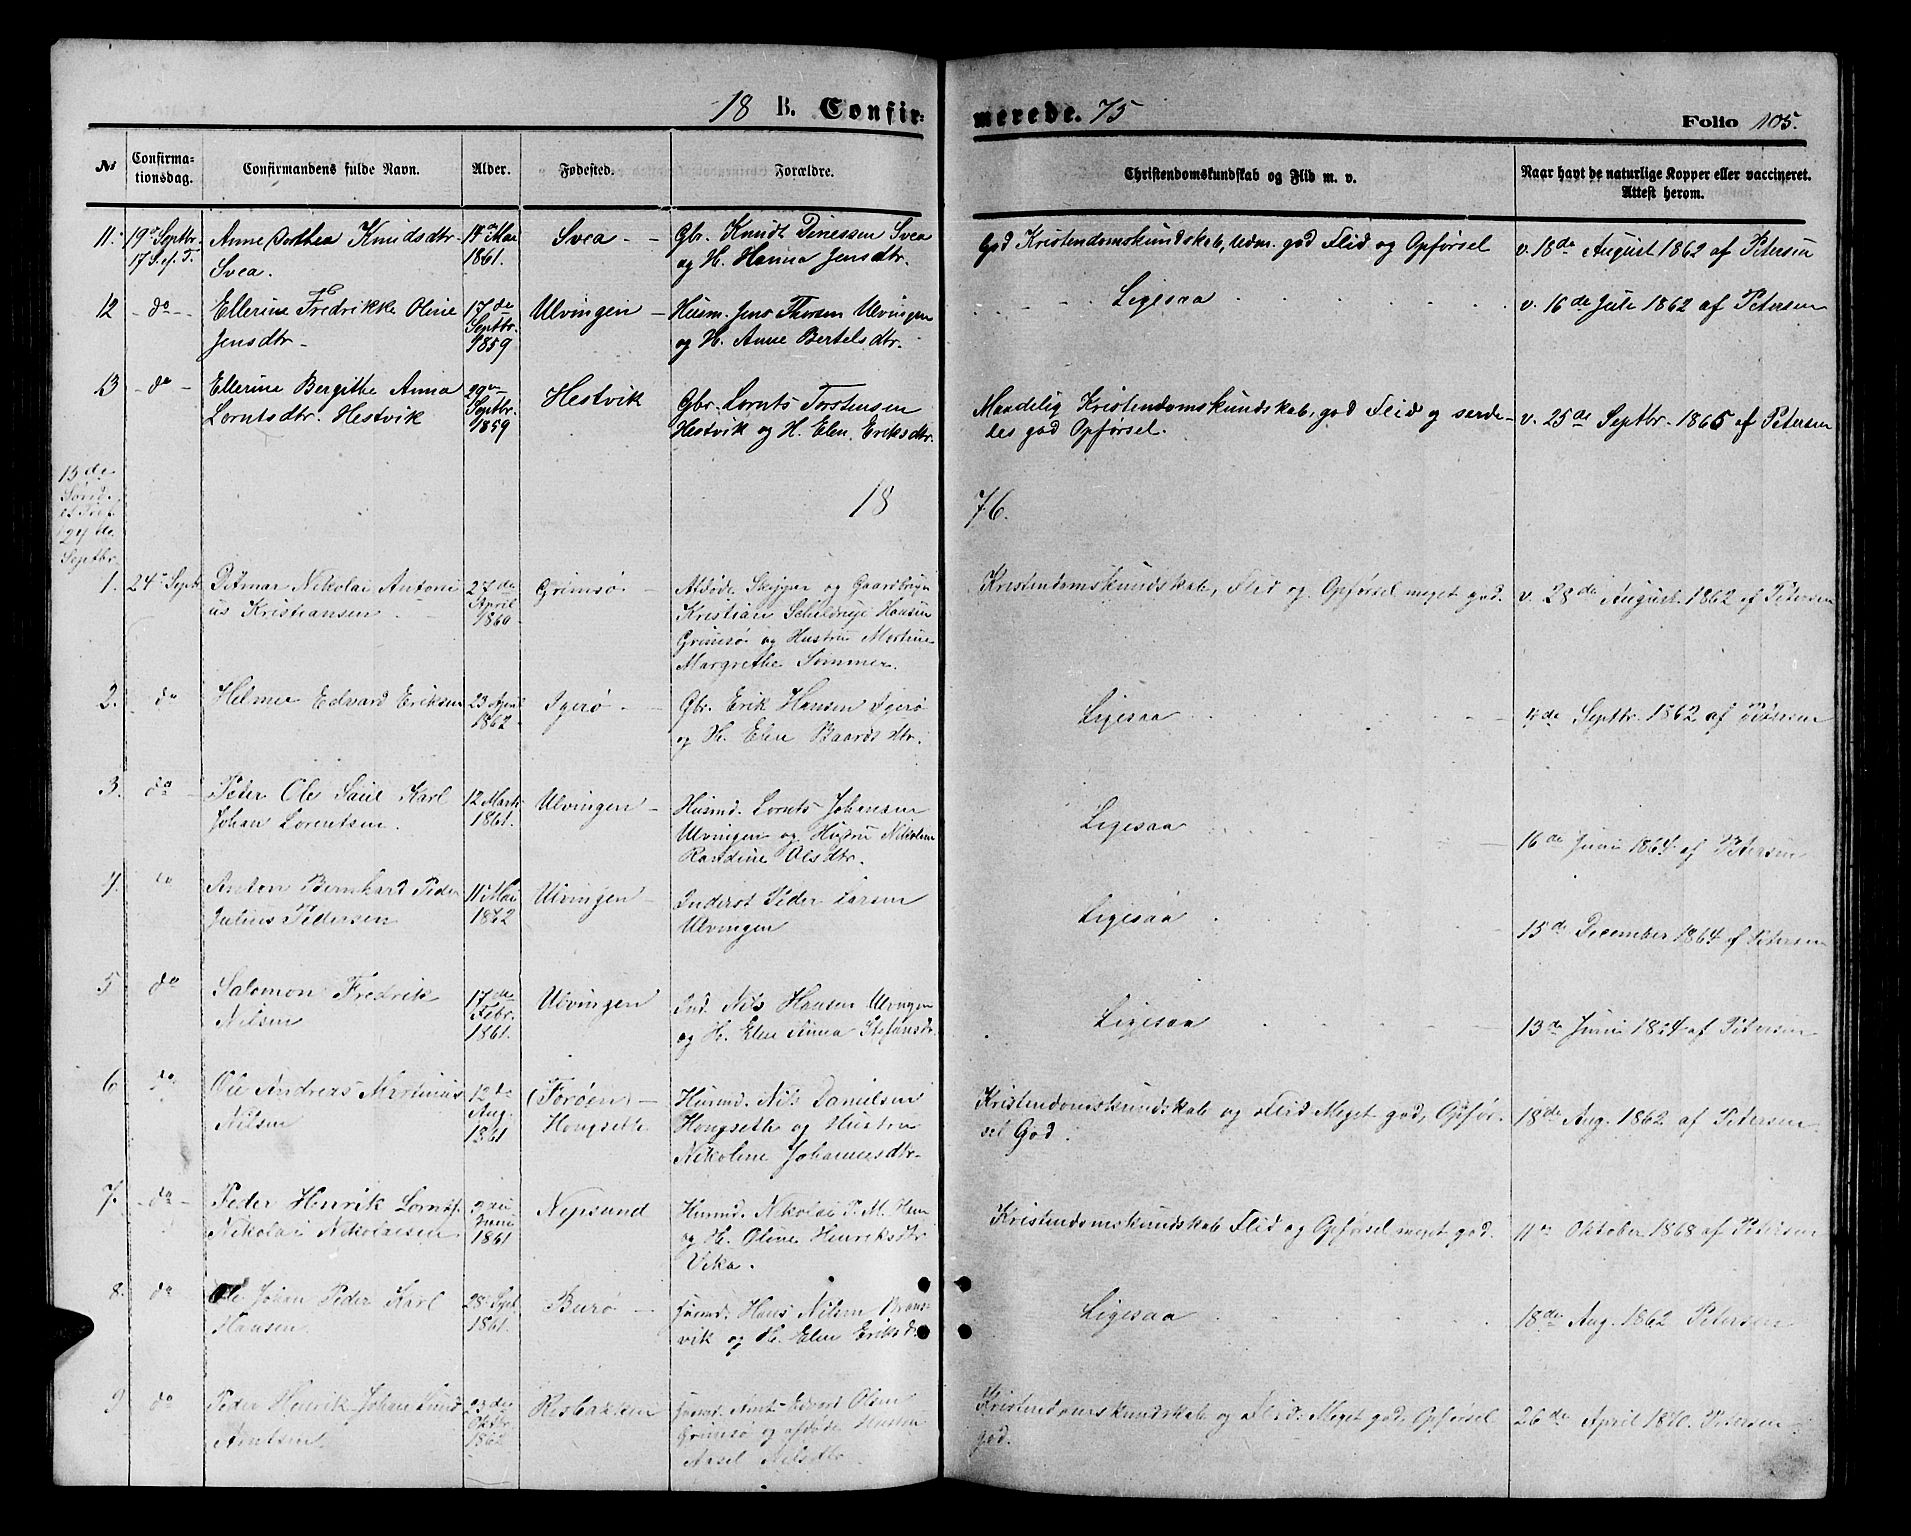 18 B. Confir-
merede. 75
Folio 105.
№
Confirma-
tionsdag.
Confirmandens fulde Navn.
Alder.
Fødested.
Forældre.
Christendomskundskab og Flid m. v.
Naar havt de naturlige Kopper eller vaccineret.
Attest herom.
11. 19de Septbr. Anne Dorthea Knudsdtr. Mai Svea Gbr. Knudt Svea God Kristendomskundskab, Udm. god Flid og Opførsel v. 18de August 1862 af Petersen
17 S. ef. T. Svea. 1861. og H. Hanna Jensdtr.
12 do Ellerine Fredrikke Oline 17de Ulvingen Husm. Jens Thorsen Ulvingen Ligesaa v. 16de Juli 1862 af Petersen
Jensdtr. Septbr. og H. Anne Bertelsdtr.
1859
13 do Ellerine Bergithe Anna 29de Hestvik Gbr. Lornts Torstensen Maadelig Kristendomskundskab, god Flid og serde- v. 25de Septbr. 1865 af Petersen
Lorntsdtr. Hestvik Septbr. Hestvik og H. Elen Eriksdtr. les god Opførsel.
1859
24de
Septbr.
18
76.
1. 24 Septbr Ditmar Nikolai Antoni 27de Grimsø Afdøde Skipper og Gaardbruger Kristendomskundskab, Flid og Opførsel meget god. v. 28de August 1862 af Petersen
us Kristiansen April Kristian Hansen
1860 Grimsø og Hustru
Margrethe Sommer.
2. do Helmer Edvard Eriksen 23 April Igerø Gbr. Erik Hansen Igerø Ligesaa Septbr. 1862 af Petersen
1862 og H. Elen Baardsdtr.
3. do Peter Ole Saul Karl 12 Marts Ulvingen Husmd. Lornts Johansen Ligesaa 16de Juni 1864 af Petersen
Johan Lorentsen. 1861. Ulvingen og Hustru
Randine Olsdtr.
4. do Anton Bernhard Peder Mai Ulvingen Inderst Peder Larsen Ligesaa 15de December 1864 af Petersen
Julius Pedersen 1862 Ulvingen
5 do Salomon Fredrik 17de Ulvingen Ind. Nils Hansen Ulvingen Ligesaa 13de Juni af Petersen
Nilsen Febr. og H. Elen Anna
1861.
6 do Ole Andreas Martinus 12de (Forøen) Husmd. Nils Danielsen Kristendomskundskab og Flid Meget god, Opfør- 18de Aug. 1862 af Petersen
Nilsen Aug. Hongseth Hongseth og Hustru sel God.
1861 Nikoline Johannesdtr.
7. do Peder Henrik Lornts Nepsund Husmd. Nikolai P. M. Kristendomskundskab Flid og Opførsel meget god. 11te Oktober 1868 af Petersen
Nikolai Nikolaisen Juni og H. Oline Henriksdtr
1861 Vika.
8. do Ole Johan Peder Karl 28 Sept. Burø Hans Nilsen Ligesaa 18de Aug. 1862 Petersen
Hansen. 1861. vik og H. Elen Eriksd.
9 do Peder Henrik Johan Lund Risbakken Arnt Edvart Olsen Kristendomskundskab og Flid Meget god, Opførsel 26de April Petersen
Arntsen Oktbr. Grimsø og afdøde Hustru god.
Nilsdtr.